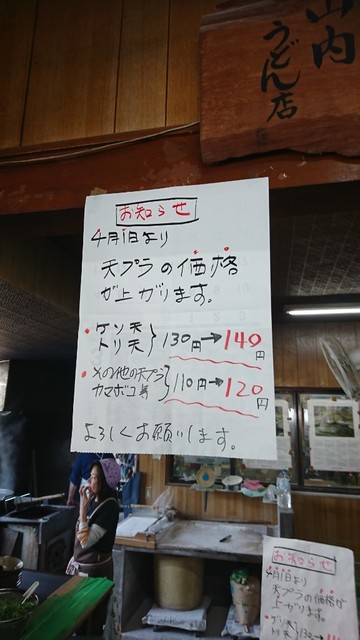 山内
うどん店
お知らせ
4月1日より
天プラの価格
が上がります。
ゲソ天
トリ天
130円→140円
その他の天プラ
カマボコ等
110円→120円
よろしくお願いします。
お知らせ
4月1日より
天プラの価格が
上がります。
ゲソ天
トリ天